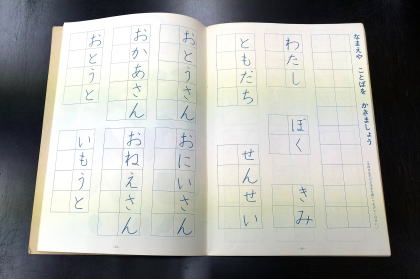 なまえや ことばを かきましょう
わたし
ぼく
きみ
ともだち
せんせい
おとうさん
おにいさん
おかあさん
おねえさん
おとうと
いもうと